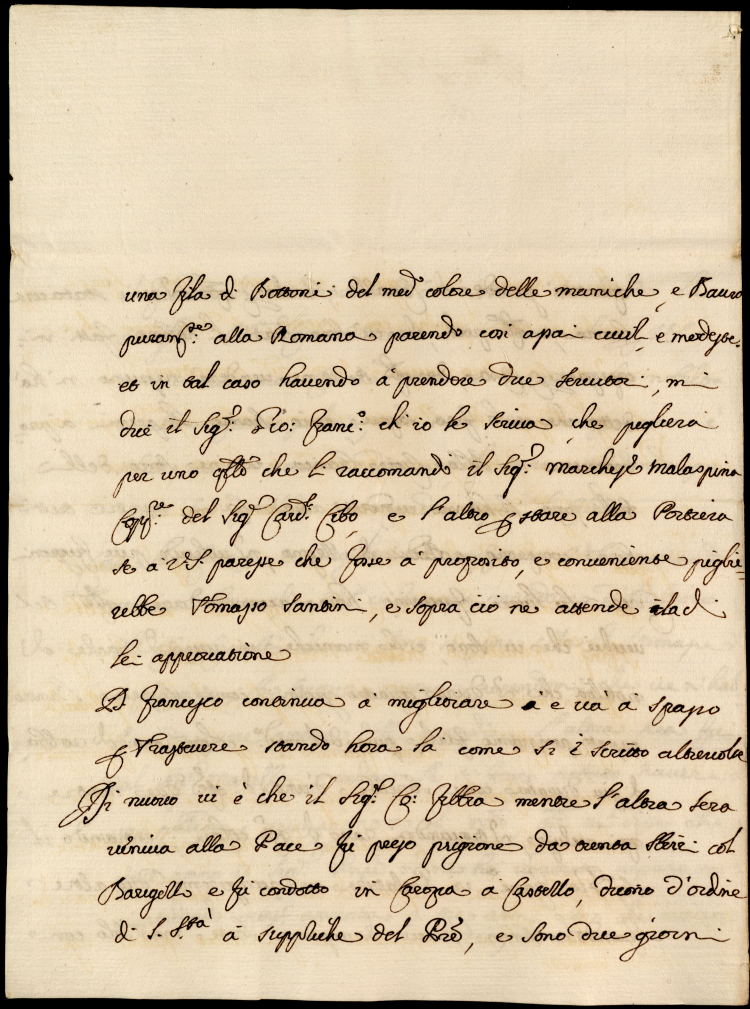 una fila di Bottoni del med.º colore delle maniche, e Bavaro
puram.te alla Romana parendo così assai civil, e modeste
et in tal caso havendo à prendere due servitori, mi
dice il Sig.r Gio: Franc.º ch'io le scriva, che piglierà
per uno q̃llo che li raccomandò il Sig.r Marchese Malaspina
Copp.re del Sig.r Card.l Cibo, e l'altro p stare alla Portiera
se à V.S. paresse che fosse à proposito, e conveniente piglie=
rebbe Tomasso Santini, e sopra ciò ne attende la di
lei approvatione
D. Francesco continua à migliorare e và à spasso
p Trastevere stando hora là come si è scritto altrevolte
Di nuovo vi è che il Sig.r Co: mentre l'altra sera
veniva alla Pace fù preso prigione da trenta sbirri col
Barigello e fù condotto in Carozza à Castello, dicono d'ordine
di S. S.tà à suppliche del Prẽ, e sono due giorni